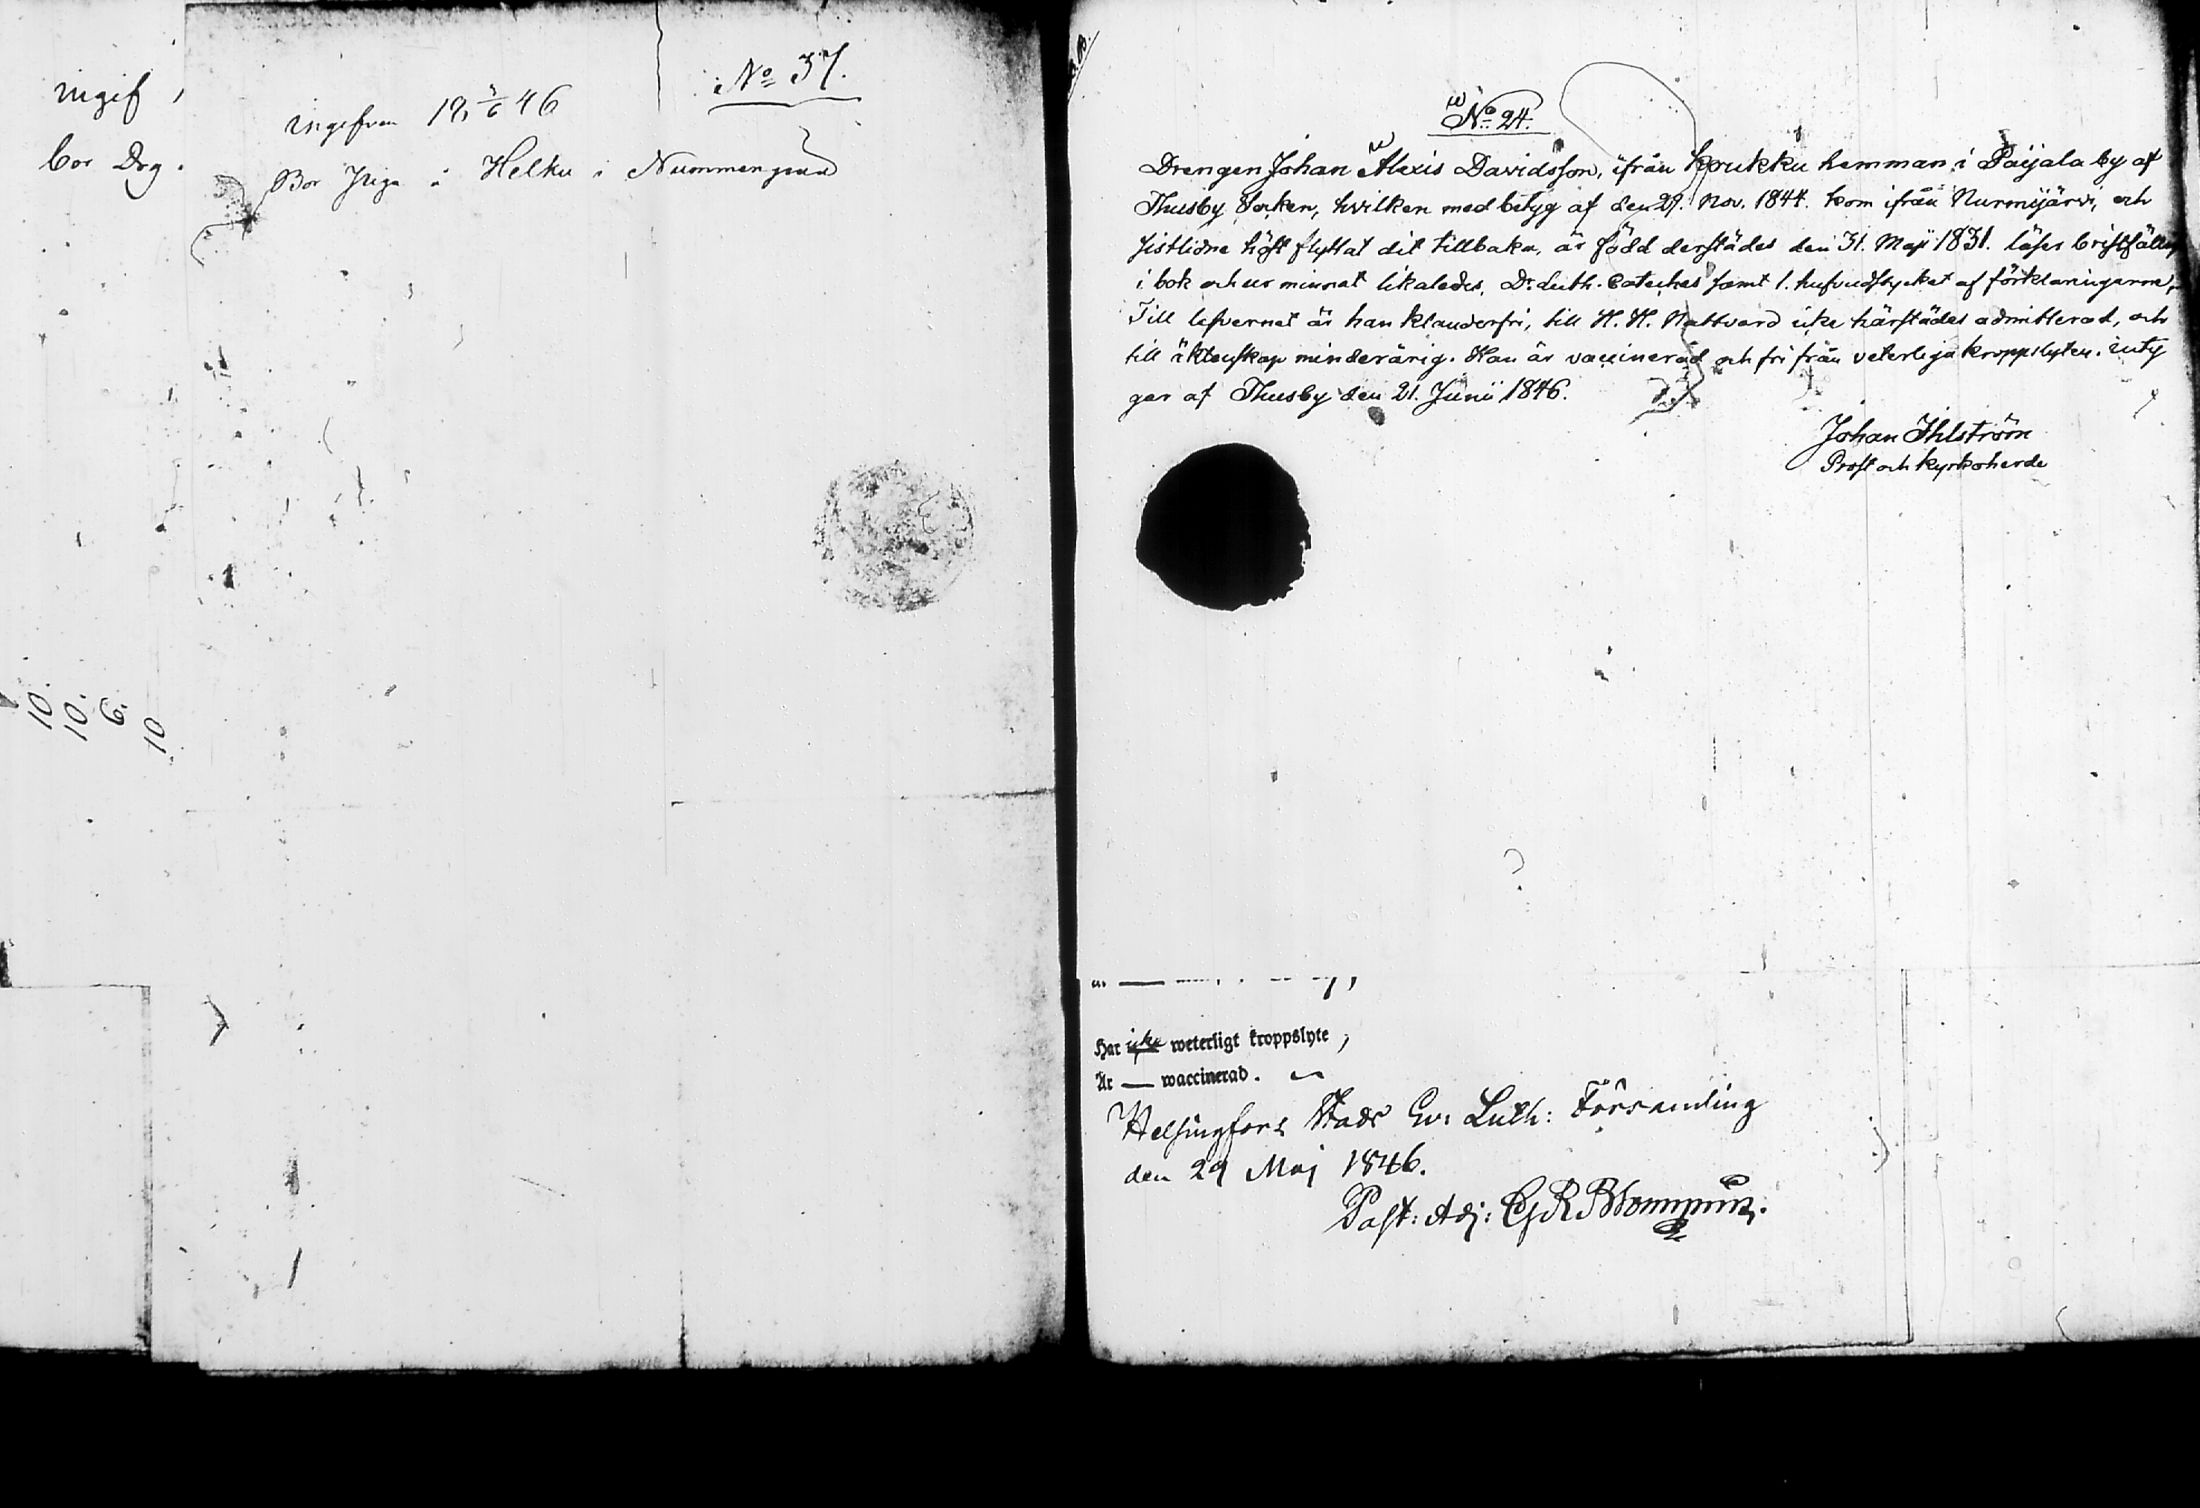 ingif
bor Drg.
10.
10.
6.
10
No 37.
18 3/6 46
Bor Jriga å Helku i Nummengård
No 24.
Drengen Johan Alexis Davidsson, ifrån Krukku hemman i Paijala by af
Thusby Socken, hvilken med betyg af den 29. Nov. 1844. kom ifrån Nurmijärvi, och
sistlidne höst flyttat dit tillbaka, är född derstädes den 31. Maji 1831. läser bristfällig
i bok och ur minnet likaledes, Dr. Luth. Cateches samt 1. hufvudstycket af förklaringarne,
Till lefvernet är han klanderfri, till H. H. Nattvard icke härstädes admitterad, och
till äktenskap minderårig. Han är vaccinerad och fri från veterliga kroppslyten. inty
gar af Thusby den 21. Junii 1846.
Johan Ihlström
Prost och kyrkoherde
Har icke weterligt kroppslyte,
Är — waccinerad.
Helsingfors Stads Ev: Luth: Församling
den 29 Maj 1846.
Past: Adj: